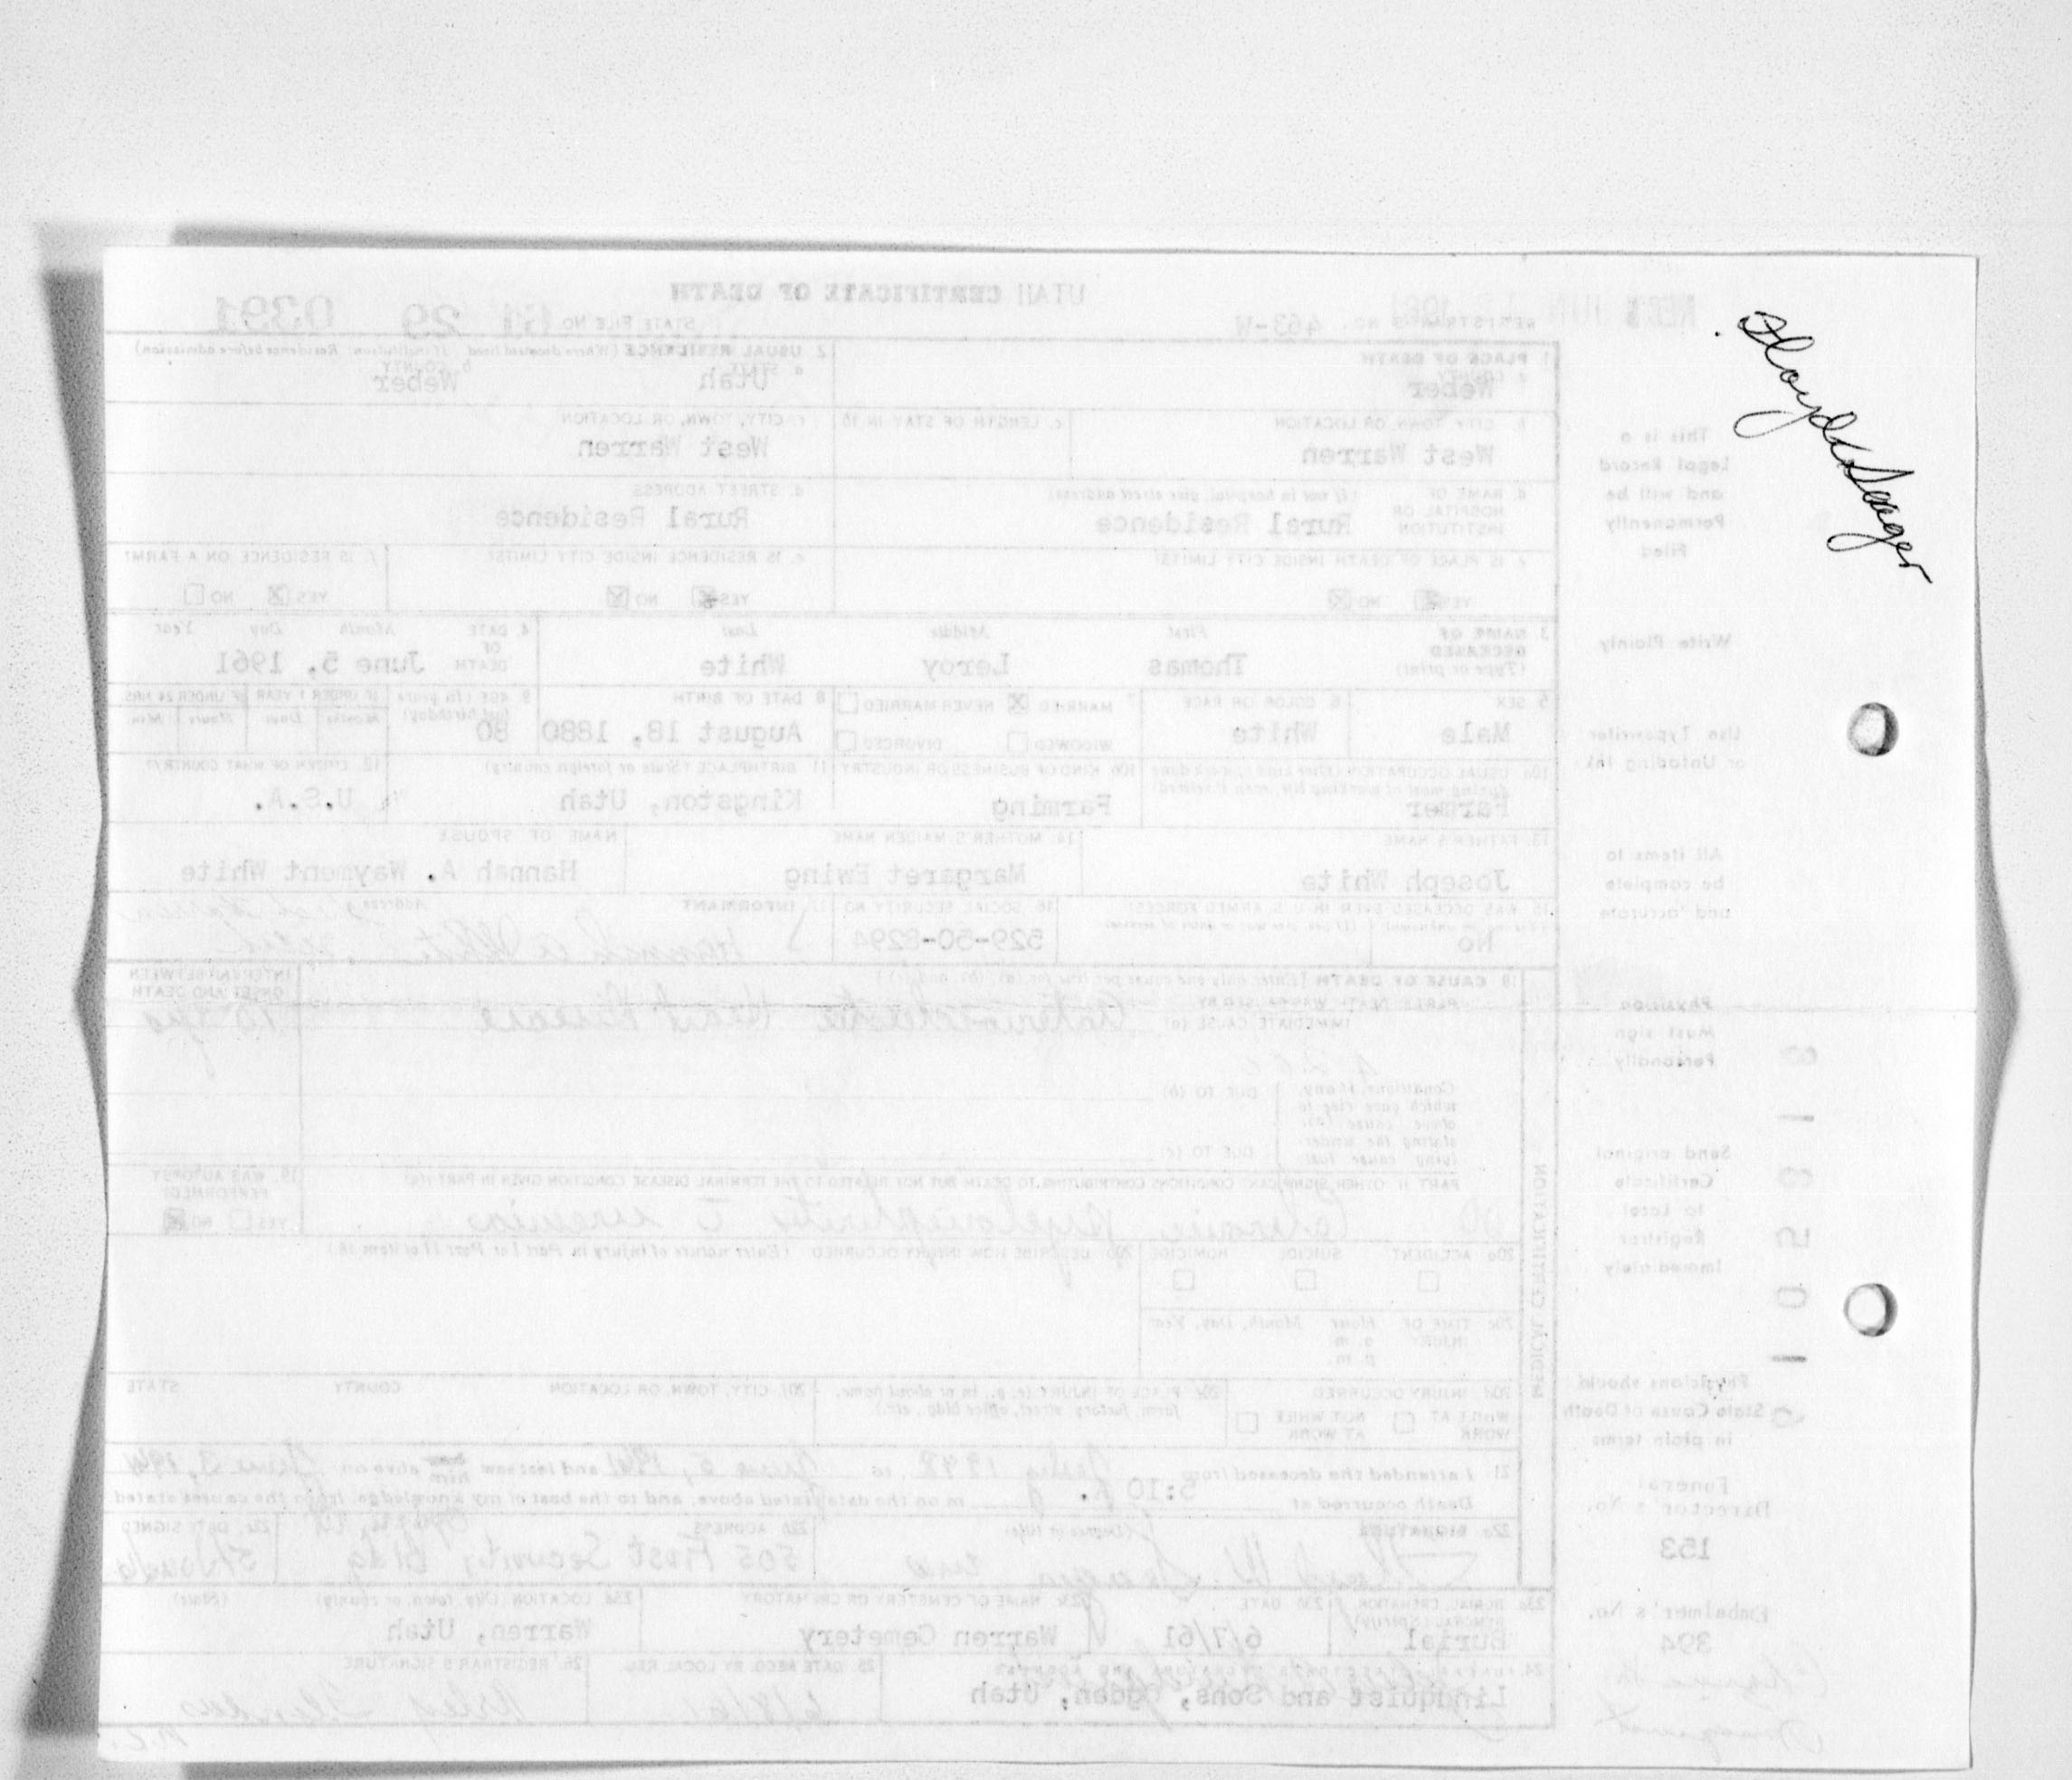 Floyd Seager
UTAH CERTIFICATE OF DEATH
REC'D JUN 1961
REGISTRAR'S NO. 463-W
STATE FILE NO. 61 29 0391
1. PLACE OF DEATH
a. COUNTY
Weber
2. USUAL RESIDENCE (Where deceased lived. If institution: Residence before admission)
a. STATE Utah
b. COUNTY Weber
b. CITY, TOWN, OR LOCATION
West Warren
c. LENGTH OF STAY IN 1b
c. CITY, TOWN, OR LOCATION
West Warren
d. NAME OF HOSPITAL OR INSTITUTION (If not in hospital, give street address)
Rural Residence
d. STREET ADDRESS
Rural Residence
e. IS PLACE OF DEATH INSIDE CITY LIMITS?
YES NO
e. IS RESIDENCE INSIDE CITY LIMITS?
YES NO
f. IS RESIDENCE ON A FARM?
YES NO
3. NAME OF DECEASED (Type or print)
First Middle Last
Thomas Leroy White
4. DATE OF DEATH
Month Day Year
June 5, 1961
5. SEX
Male
6. COLOR OR RACE
White
7. MARRIED NEVER MARRIED
WIDOWED DIVORCED
8. DATE OF BIRTH
August 18, 1880
9. AGE (In years last birthday)
80
IF UNDER 1 YEAR IF UNDER 24 HRS.
Months Days Hours Min.
10a. USUAL OCCUPATION (Give kind of work done during most of working life, even if retired)
Farmer
10b. KIND OF BUSINESS OR INDUSTRY
Farming
11. BIRTHPLACE (State or foreign country)
Kingston, Utah
12. CITIZEN OF WHAT COUNTRY?
U.S.A.
13. FATHER'S NAME
Joseph White
14. MOTHER'S MAIDEN NAME
Margaret Ewing
NAME OF SPOUSE
Hannah A. Wayment White
15. WAS DECEASED EVER IN U.S. ARMED FORCES?
(Yes, no, or unknown) (If yes, give war or dates of service)
No
16. SOCIAL SECURITY NO.
529-50-8294
17. INFORMANT Address
Hannah A White
18. CAUSE OF DEATH [Enter only one cause per line for (a), (b), and (c).]
PART I. DEATH WAS CAUSED BY:
IMMEDIATE CAUSE (a) Arteriosclerotic Heart Disease
INTERVAL BETWEEN ONSET AND DEATH
10 yrs
Conditions, if any, which gave rise to above cause (a), stating the underlying cause last.
DUE TO (b)
DUE TO (c)
PART II. OTHER SIGNIFICANT CONDITIONS CONTRIBUTING TO DEATH BUT NOT RELATED TO THE TERMINAL DISEASE CONDITION GIVEN IN PART I(a)
Chronic Pyelonephritis c uremia
19. WAS AUTOPSY PERFORMED?
YES NO
20a. ACCIDENT SUICIDE HOMICIDE
20b. DESCRIBE HOW INJURY OCCURRED. (Enter nature of injury in Part I or Part II of item 18.)
20c. TIME OF INJURY Hour Month, Day, Year
a. m.
p. m.
20d. INJURY OCCURRED
WHILE AT WORK NOT WHILE AT WORK
20e. PLACE OF INJURY (e. g., in or about home, farm, factory, street, office bldg., etc.)
20f. CITY, TOWN, OR LOCATION COUNTY STATE
21. I attended the deceased from July 1948, to June 5, 1961 and last saw him alive on June 3, 1961
Death occurred at 5:10 A. m on the date stated above, and to the best of my knowledge, from the causes stated.
22a. SIGNATURE (Degree or title)
22b. ADDRESS
505 First Security Bldg
Ogden, Ut
22c. DATE SIGNED
23a. BURIAL, CREMATION, REMOVAL (Specify)
Burial
23b. DATE
6/7/61
23c. NAME OF CEMETERY OR CREMATORY
Warren Cemetery
23d. LOCATION (City, town, or county) (State)
Warren, Utah
24. FUNERAL DIRECTOR'S SIGNATURE AND ADDRESS
Lindquist and Sons, Ogden, Utah
25. DATE RECD. BY LOCAL REG.
6/8/61
26. REGISTRAR'S SIGNATURE
MEDICAL CERTIFICATION
This is a
Legal Record
and will be
Permanently
Filed
Write Plainly
Use Typewriter
or Unfading Ink
All items to
be complete
and accurate
Physician
Must sign
Personally
Send original
Certificate
to Local
Registrar
Immediately
Physicians should
State Cause of Death
in plain terms
Funeral
Director's No.
153
Embalmer's No.
394